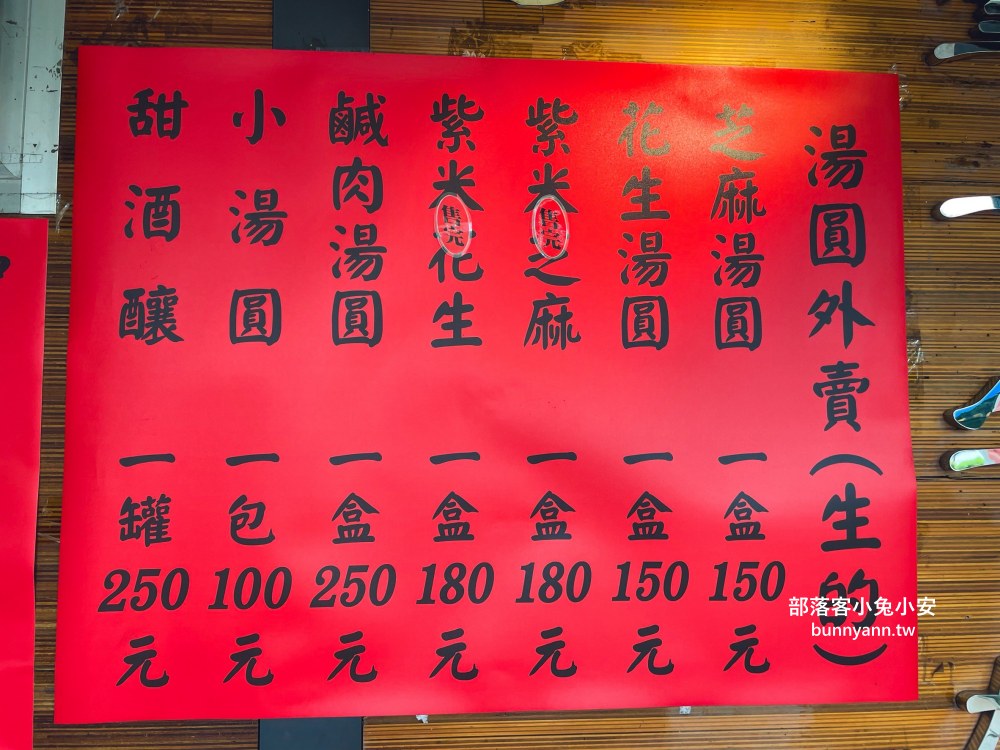 湯圓外賣(生的)
芝麻湯圓 一盒 150元
花生湯圓 一盒 150元
紫米芝麻 一盒 180元
售完
紫米花生 一盒 180元
售完
鹹肉湯圓 一盒 250元
小湯圓 一包 100元
甜酒釀 一罐 250元
部落客小兔小安
bunnyann.tw